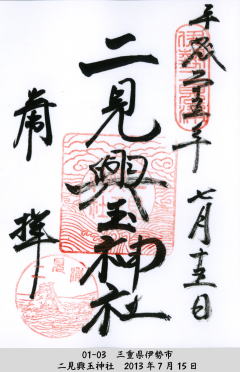 平成二十五年 七月十五日
二見興玉神社
奉拝
01-03 三重県伊勢市
二見興玉神社 2013年7月15日